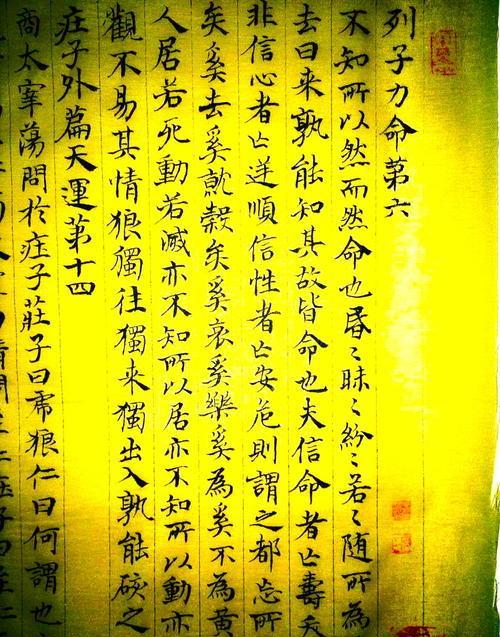 列子力命第六
不知所以然而然命也昏〻昧〻紛〻若〻随所為
去曰来孰能知其故皆命也夫信命者亡壽夭
非信心者亡逆順信性者亡安危則謂之都忘所
矣奚去奚就穀矣奚哀奚樂奚為奚不為黄
人居若死動若滅亦不知所以居亦不知所以動亦
觀不易其情狼獨往獨来獨出入孰能硋之
庄子外篇天運第十四
商太宰蕩問於庄子莊子曰虎狼仁曰何謂也